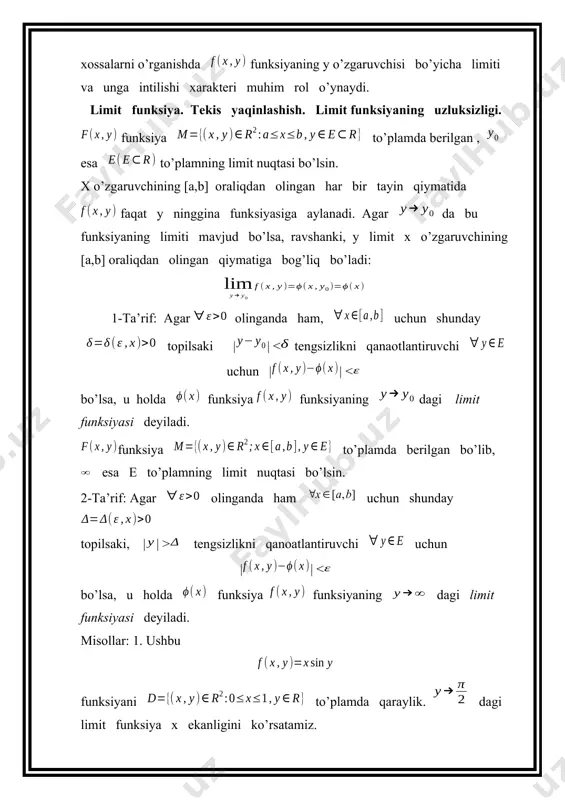 xossalarni o’rganishda f(x,y) funksiyaning y o’zgaruvchisi bo’yicha limiti
va unga intilishi xarakteri muhim rol o’ynaydi.
Limit funksiya. Tekis yaqinlashish. Limit funksiyaning uzluksizligi.
F(x,y) funksiya M={(x,y)∈R²:a≤x≤b,y∈E⊂R} to’plamda berilgan , y₀
esa E(E⊂R) to’plamning limit nuqtasi bo’lsin.
X o’zgaruvchining [a,b] oraliqdan olingan har bir tayin qiymatida
f(x,y) faqat y ninggina funksiyasiga aylanadi. Agar y→y₀ da bu
funksiyaning limiti mavjud bo’lsa, ravshanki, y limit x o’zgaruvchining
[a,b] oraliqdan olingan qiymatiga bog’liq bo’ladi:
lim f(x,y)=ϕ(x,y₀)=ϕ(x)
y→y₀
1-Ta’rif: Agar ∀ε>0 olinganda ham, ∀x∈[a,b] uchun shunday
δ=δ(ε,x)>0 topilsaki |y−y₀|<δ tengsizlikni qanaotlantiruvchi ∀y∈E
uchun |f(x,y)−ϕ(x)|<ε
bo’lsa, u holda ϕ(x) funksiya f(x,y) funksiyaning y→y₀ dagi limit
funksiyasi deyiladi.
F(x,y)funksiya M={(x,y)∈R²;x∈[a,b],y∈E} to’plamda berilgan bo’lib,
∞ esa E to’plamning limit nuqtasi bo’lsin.
2-Ta’rif: Agar ∀ε>0 olinganda ham ∀x∈[a,b] uchun shunday
Δ=Δ(ε,x)>0
topilsaki, |y|>Δ tengsizlikni qanoatlantiruvchi ∀y∈E uchun
|f(x,y)−ϕ(x)|<ε
bo’lsa, u holda ϕ(x) funksiya f(x,y) funksiyaning y→∞ dagi limit
funksiyasi deyiladi.
Misollar: 1. Ushbu
f(x,y)=x sin y
funksiyani D={(x,y)∈R²:0≤x≤1,y∈R} to’plamda qaraylik. y→π/2 dagi
limit funksiya x ekanligini ko’rsatamiz.
FaylHub.uz
FaylHub.uz
FaylHub.uz
b.uz
uz
uz